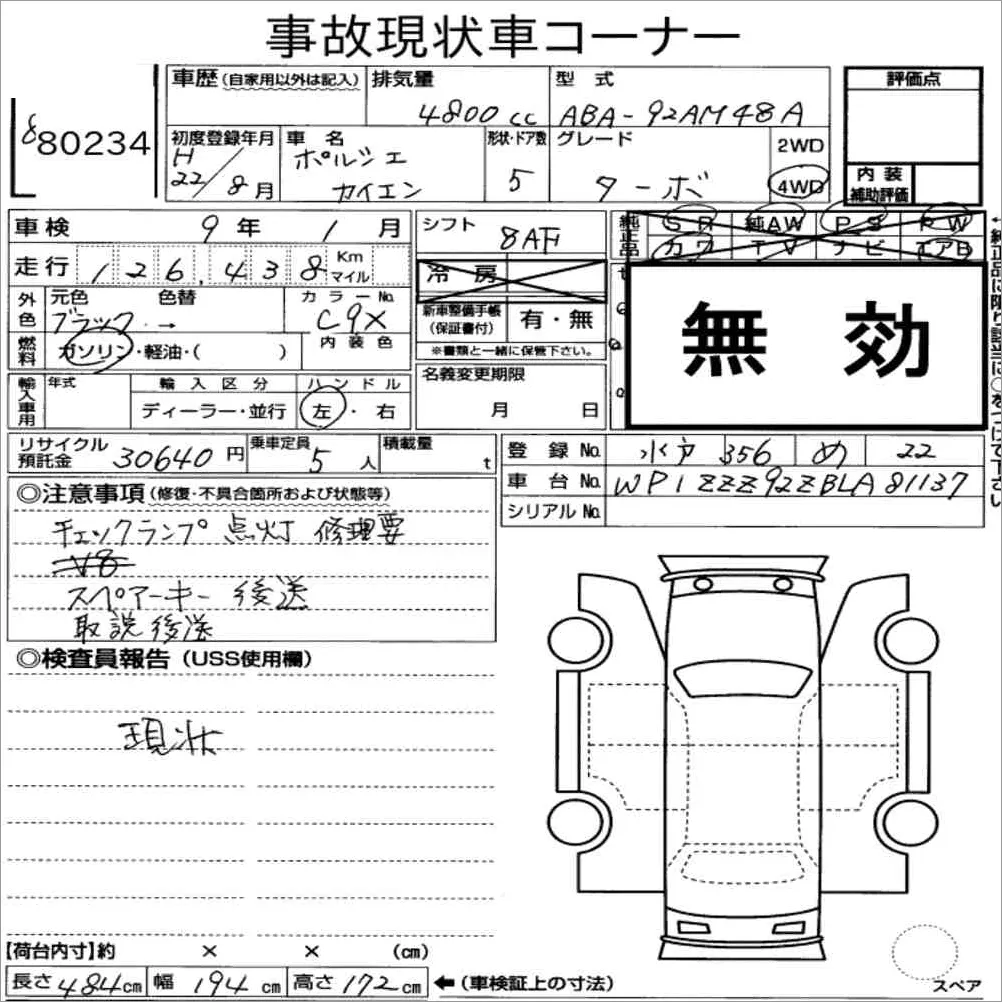 事故現状車コーナー
80234
車歴(自家用以外は記入) 排気量 4800 cc 型式 ABA-92AM48A
初度登録年月 H 22/8月 車名 ポルシェ カイエン 形状・ドア数 5 グレード ターボ 2WD 4WD
評価点
内装
補助評価
車検 9年 1月 シフト 8AT
純正品 SR 純AW PS PW
カワ TV ナビ エアB
走行 126,438 Km マイル
冷房
外色 元色 ブラック 色替 → カラーNo. C9X
内装色
燃料 ガソリン・軽油・( )
新車整備手帳(保証書付) 有・無
※書類と一緒に保管下さい。
無効
輸入車用 年式 輸入区分 ディーラー・並行 ハンドル 左・右
名義変更期限 月 日
リサイクル預託金 30640円 乗車定員 5人 積載量 t
登録No. 水戸 356 め 22
車台No. WP1ZZZ92ZBLA81137
シリアルNo.
◎注意事項(修復・不具合箇所および状態等)
チェックランプ点灯 修理要
V8
スペアーキー後送
取説後送
◎検査員報告(USS使用欄)
現状
【荷台内寸】約 × × (cm)
長さ484cm 幅194cm 高さ172cm ←(車検証上の寸法)
スペア